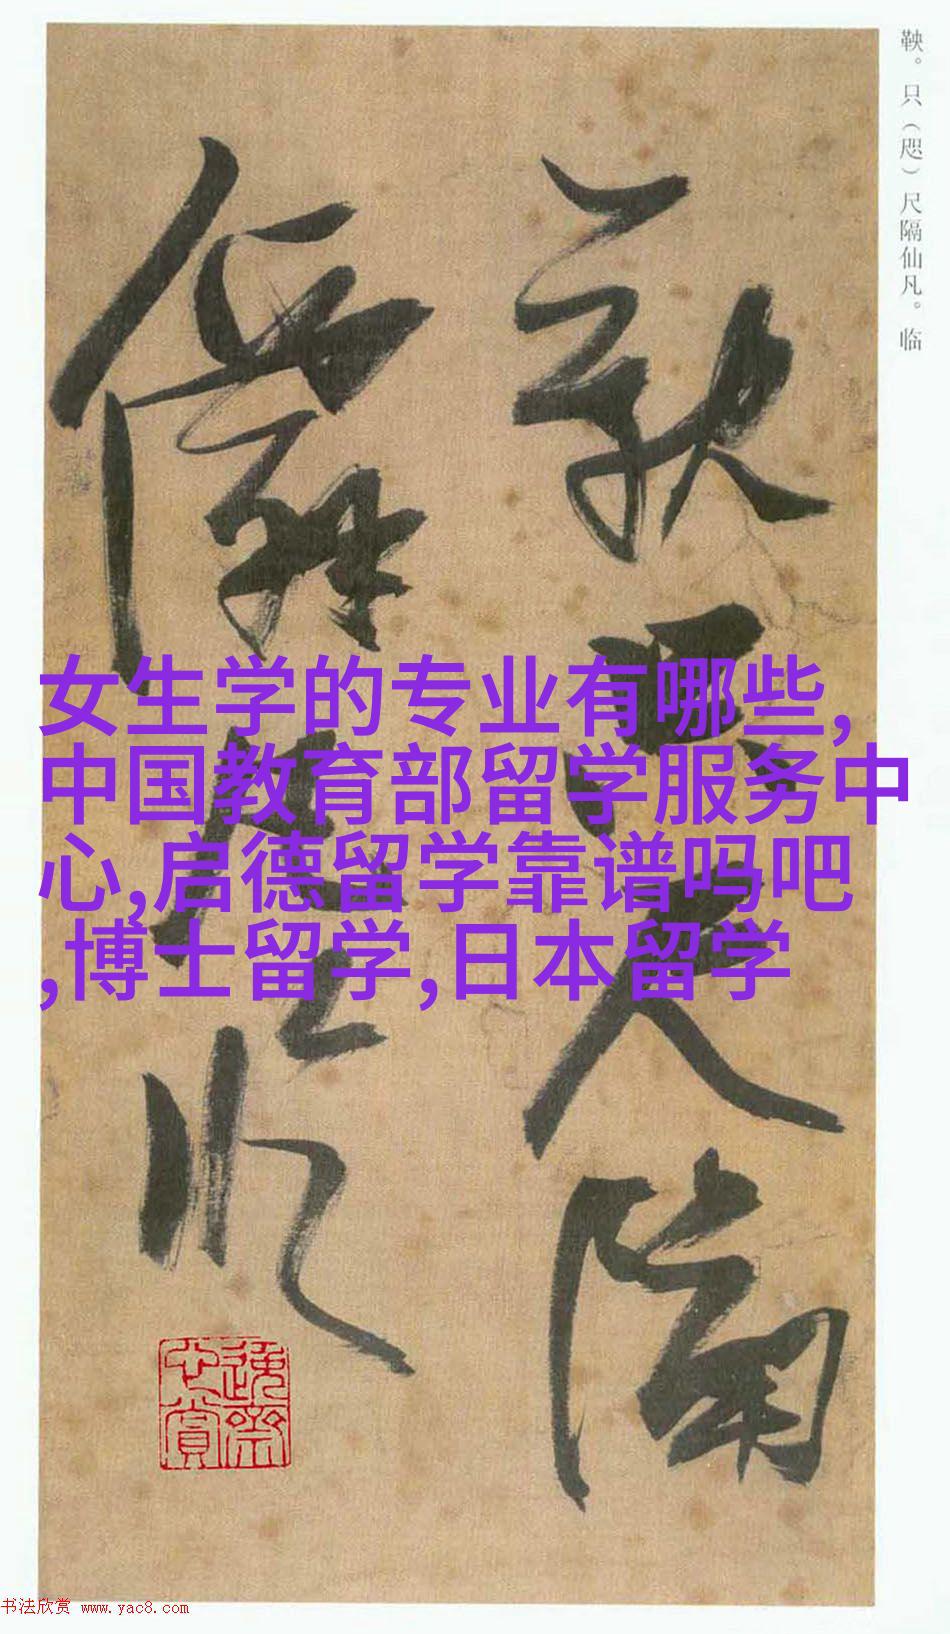 鞅。只（咫）尺隔仙凡。临
鞅只尺隔
仙凡临
女生学的专业有哪些,
中国教育部留学服务中
心,启德留学靠谱吗吧
,博士留学,日本留学
书法欣赏 www.yac8.com